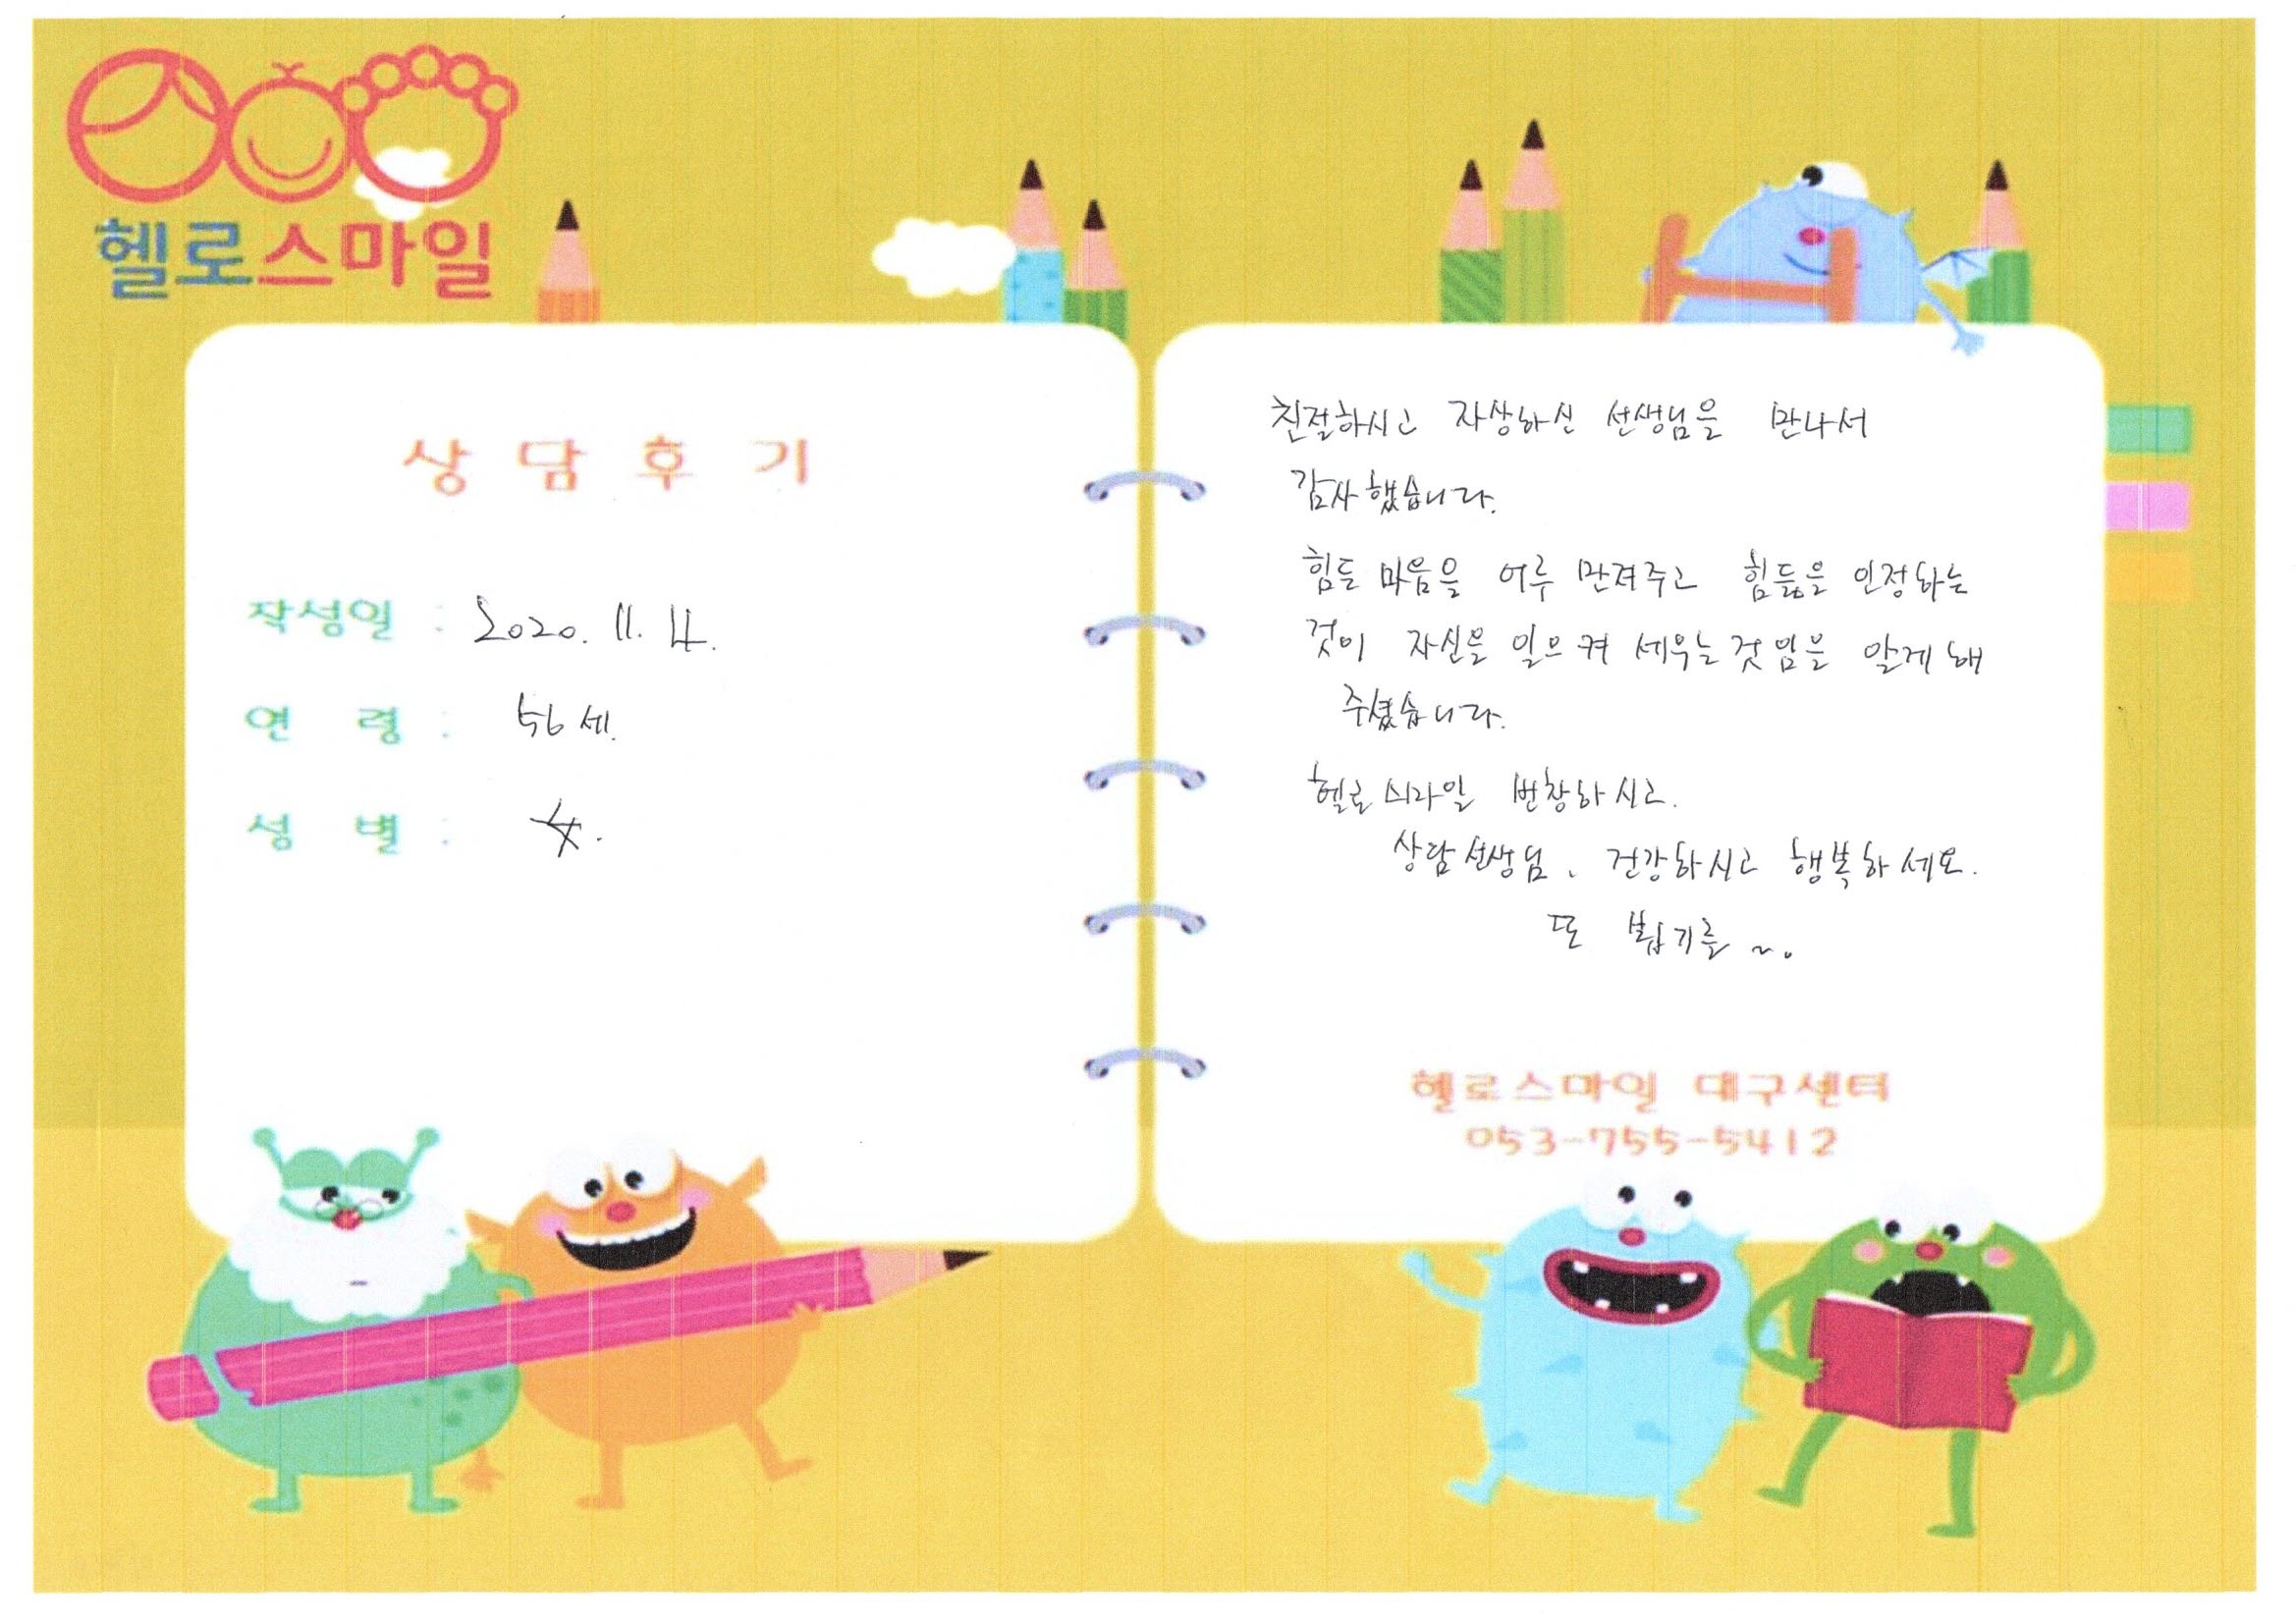 헬로스마일
상담후기
작성일 : 2020. 11. 4.
연 령 : 56세.
성 별 : 女.
친절하시고 자상하신 선생님을 만나서
감사했습니다.
힘든 마음을 어루 만져주고 힘듦을 인정하는
것이 자신을 일으켜 세우는것임을 알게 해
주셨습니다.
헬로 스마일 번창하시고.
상담선생님, 건강하시고 행복하세요.
또 뵙기를 ~.
헬로스마일 대구센터
053-755-5412